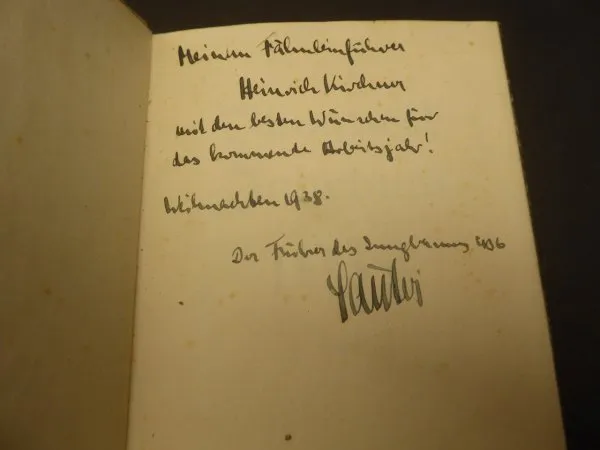 Meinem Fähnleinführer
Heinrich Kirchner
mit den besten Wünschen für
das kommende Arbeitsjahr!
Weihnachten 1938.
Der Führer des Jungbannes 436